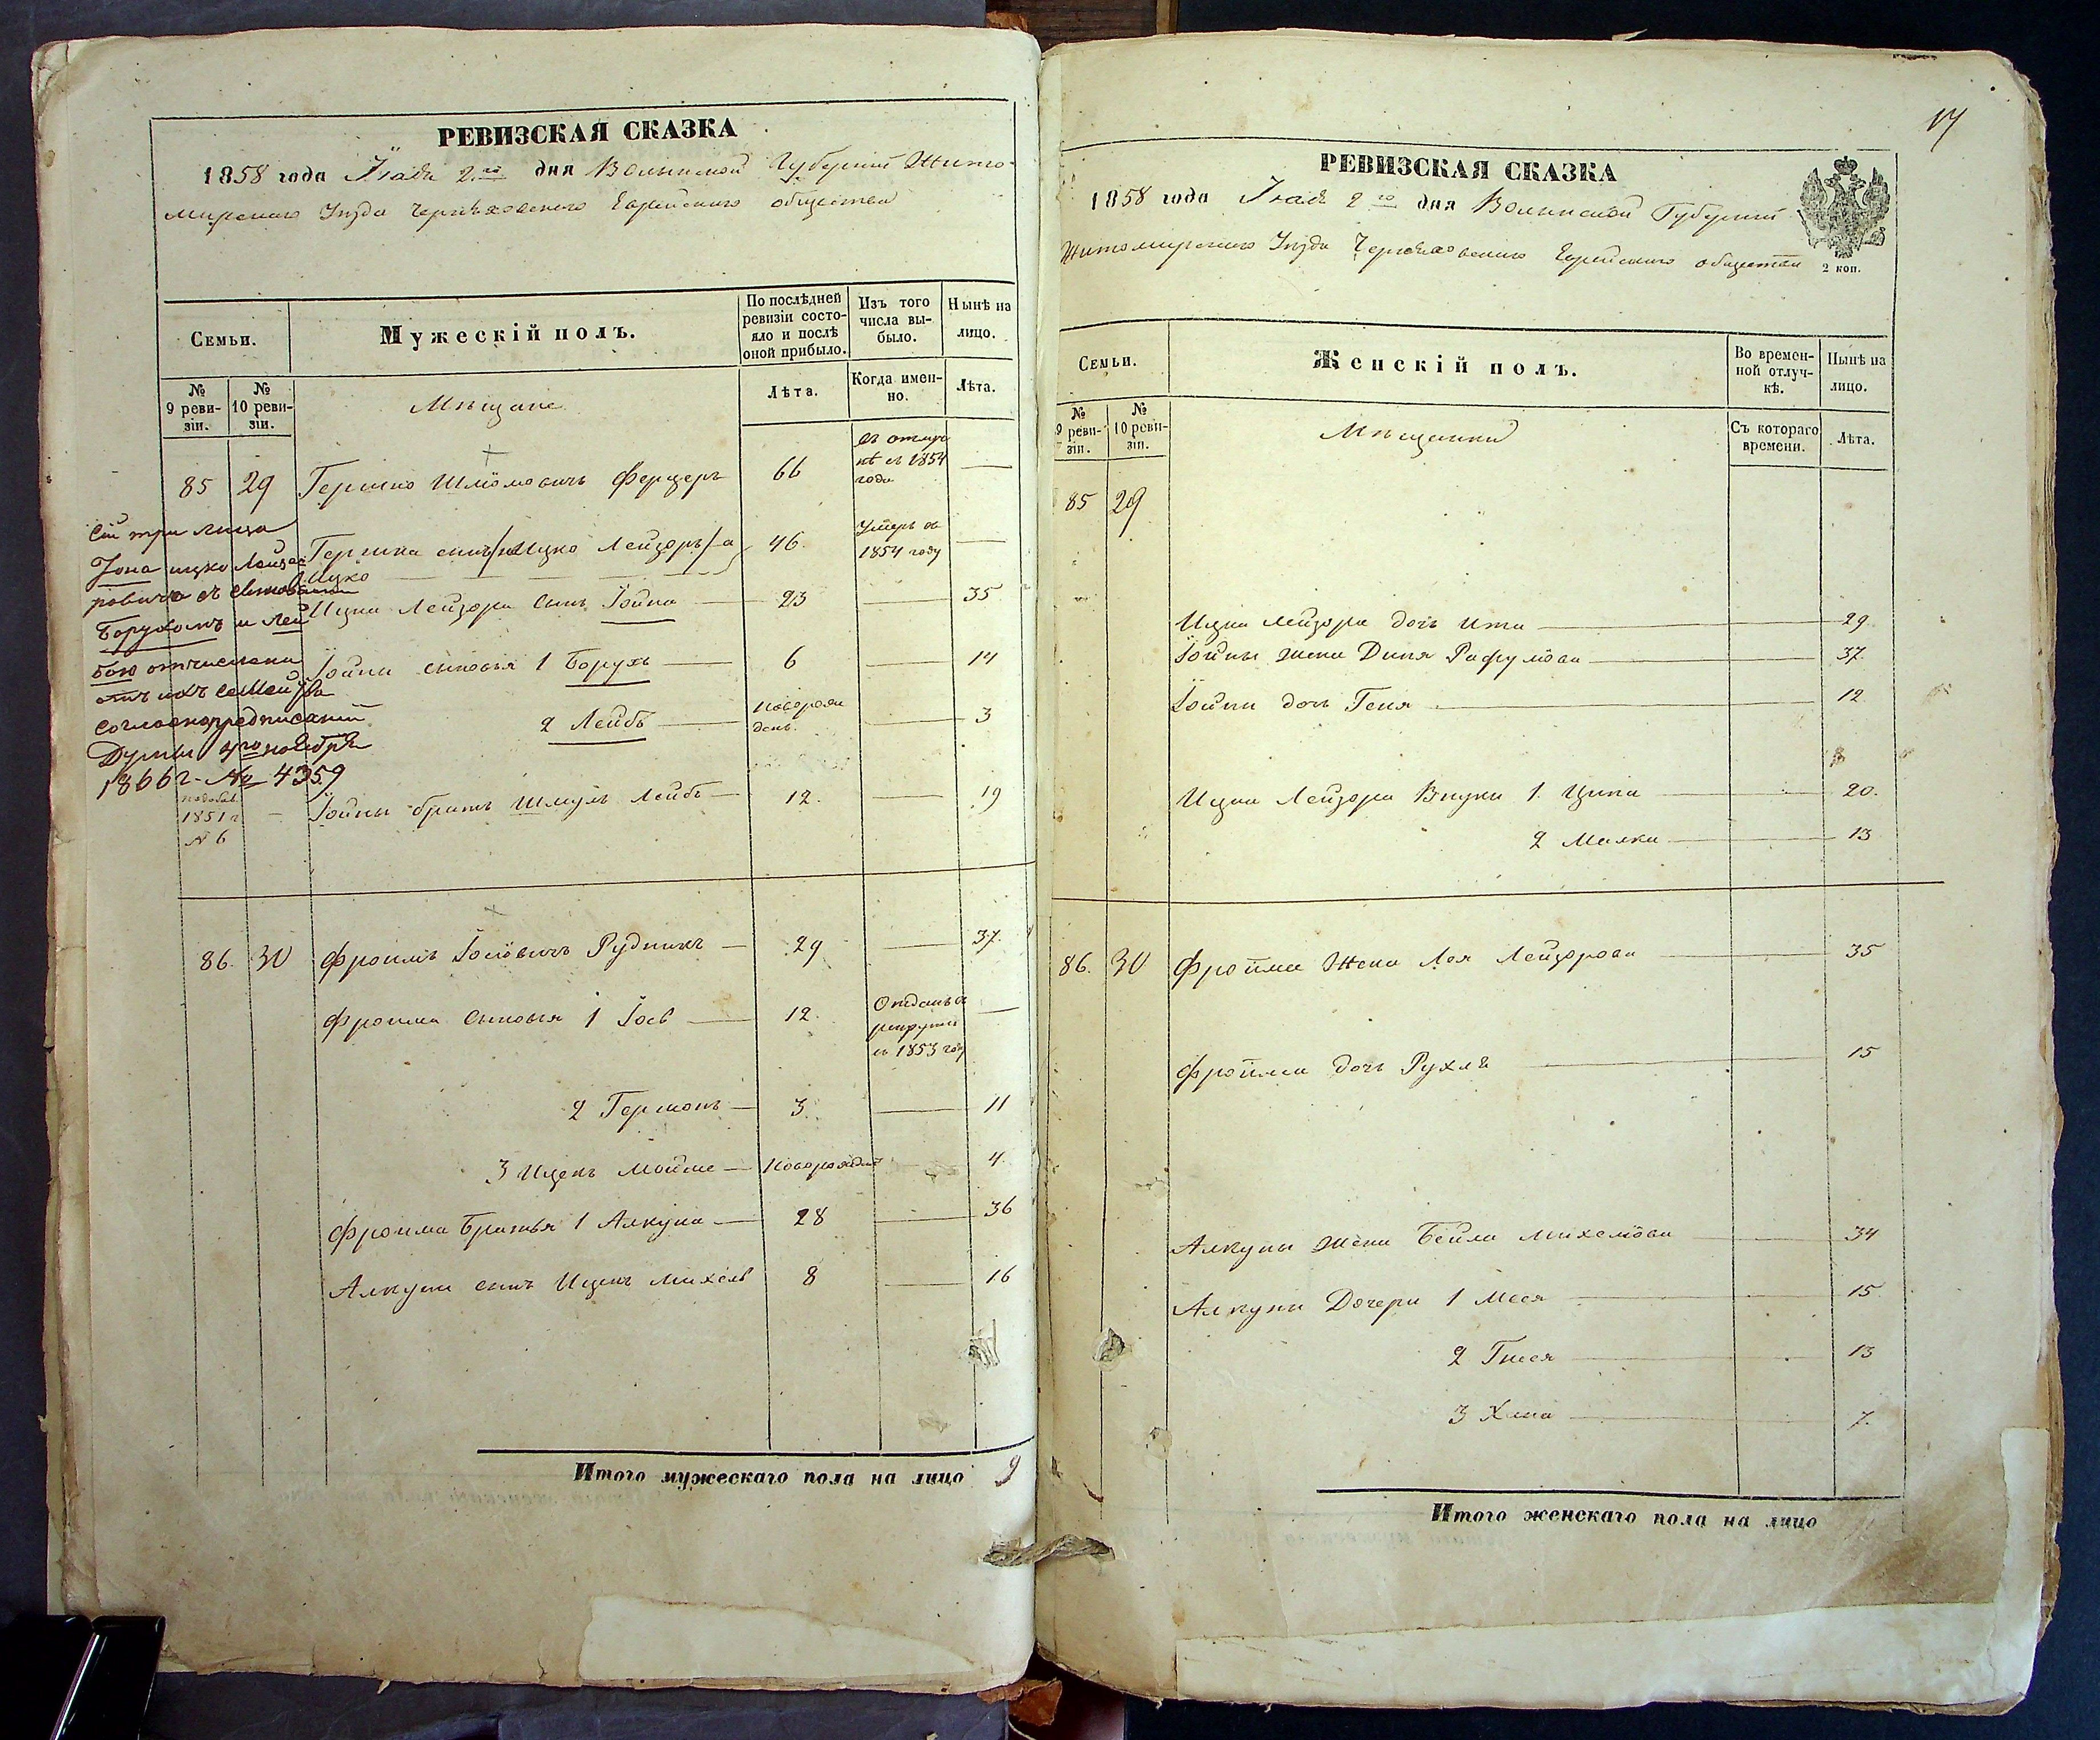 РЕВИЗСКАЯ СКАЗКА
1858 года Іюля 2го дня Волынской Губерніи Жито-
мирскаго Уѣзда Черняховского Еврейского общества
Семьи.
Мужескій полъ.
По послѣдней ревизіи состо-яло и послѣ оной прибыло.
Изъ того числа вы-было.
Нынѣ на лицо.
№ 9 реви-зіи.
№ 10 реви-зіи.
Мѣщане
Лѣта.
Когда имен-но.
Лѣта.
85 29 Гершко Шлiомовичъ 66 1854 года —
Гершка сынъ Ицко Лейзоръ 46. Умеръ въ 1854 году —
Ицко
Ицка Лейзора сынъ Іойна — 23 — 35
Іойны сыновья 1 Борухъ — 6 — 14
2 Лейбъ — новорож день — 3
Іойны братъ Шмуль Лейбъ — 12. — 19
Сіи три лица
Іона Ицко Лейзо
ровичъ съ сыновьями
Борухомъ и Лей
бою отчислены
отъ ихъ семейства
согласно предписанія
Думы ноября
1866 г. № 4359
1851 г
№ 6
86. 30 Фроимъ Іосiовичъ Рудникъ — 29 — 37.
Фроима сыновья 1 Іось — 12. Отданъ въ рекруты въ 1853 году —
2 Гершонъ — 3. — 11
3 Ицекъ Мойше — Новорожден — 4.
Фроима братья 1 Алкуна — 28 — 36
Алкуны сынъ Ицекъ Михель 8 — 16
Итого мужескаго пола на лицо 9
17
РЕВИЗСКАЯ СКАЗКА
1858 года Іюля 2го дня Волынской Губерніи
Житомирскаго Уѣзда Черняховскаго Еврейскаго общества
2 коп.
Семьи.
Женскій полъ.
Во времен-ной отлуч-кѣ.
Нынѣ на лицо.
№ 9 реви-зіи.
№ 10 реви-зіи.
Мѣщанки
Съ котораго времени.
Лѣта.
85 29
Ицка Лейзора дочь Ита — 29
Іойны жена Диня — 37.
Іойны дочь Геня — 12
Ицка Лейзора Внуки 1. Ципа — 20.
2 Малка — 13
86. 30 Фройма Жена Лея Лейзорова — 35
Фройма дочь Рухля — 15
Алкуны жена Бейла Михелiова — 34
Алкуны Дочери 1 Мася — 15
2 Гися — 13
3 Хана — 7.
Итого женскаго пола на лицо